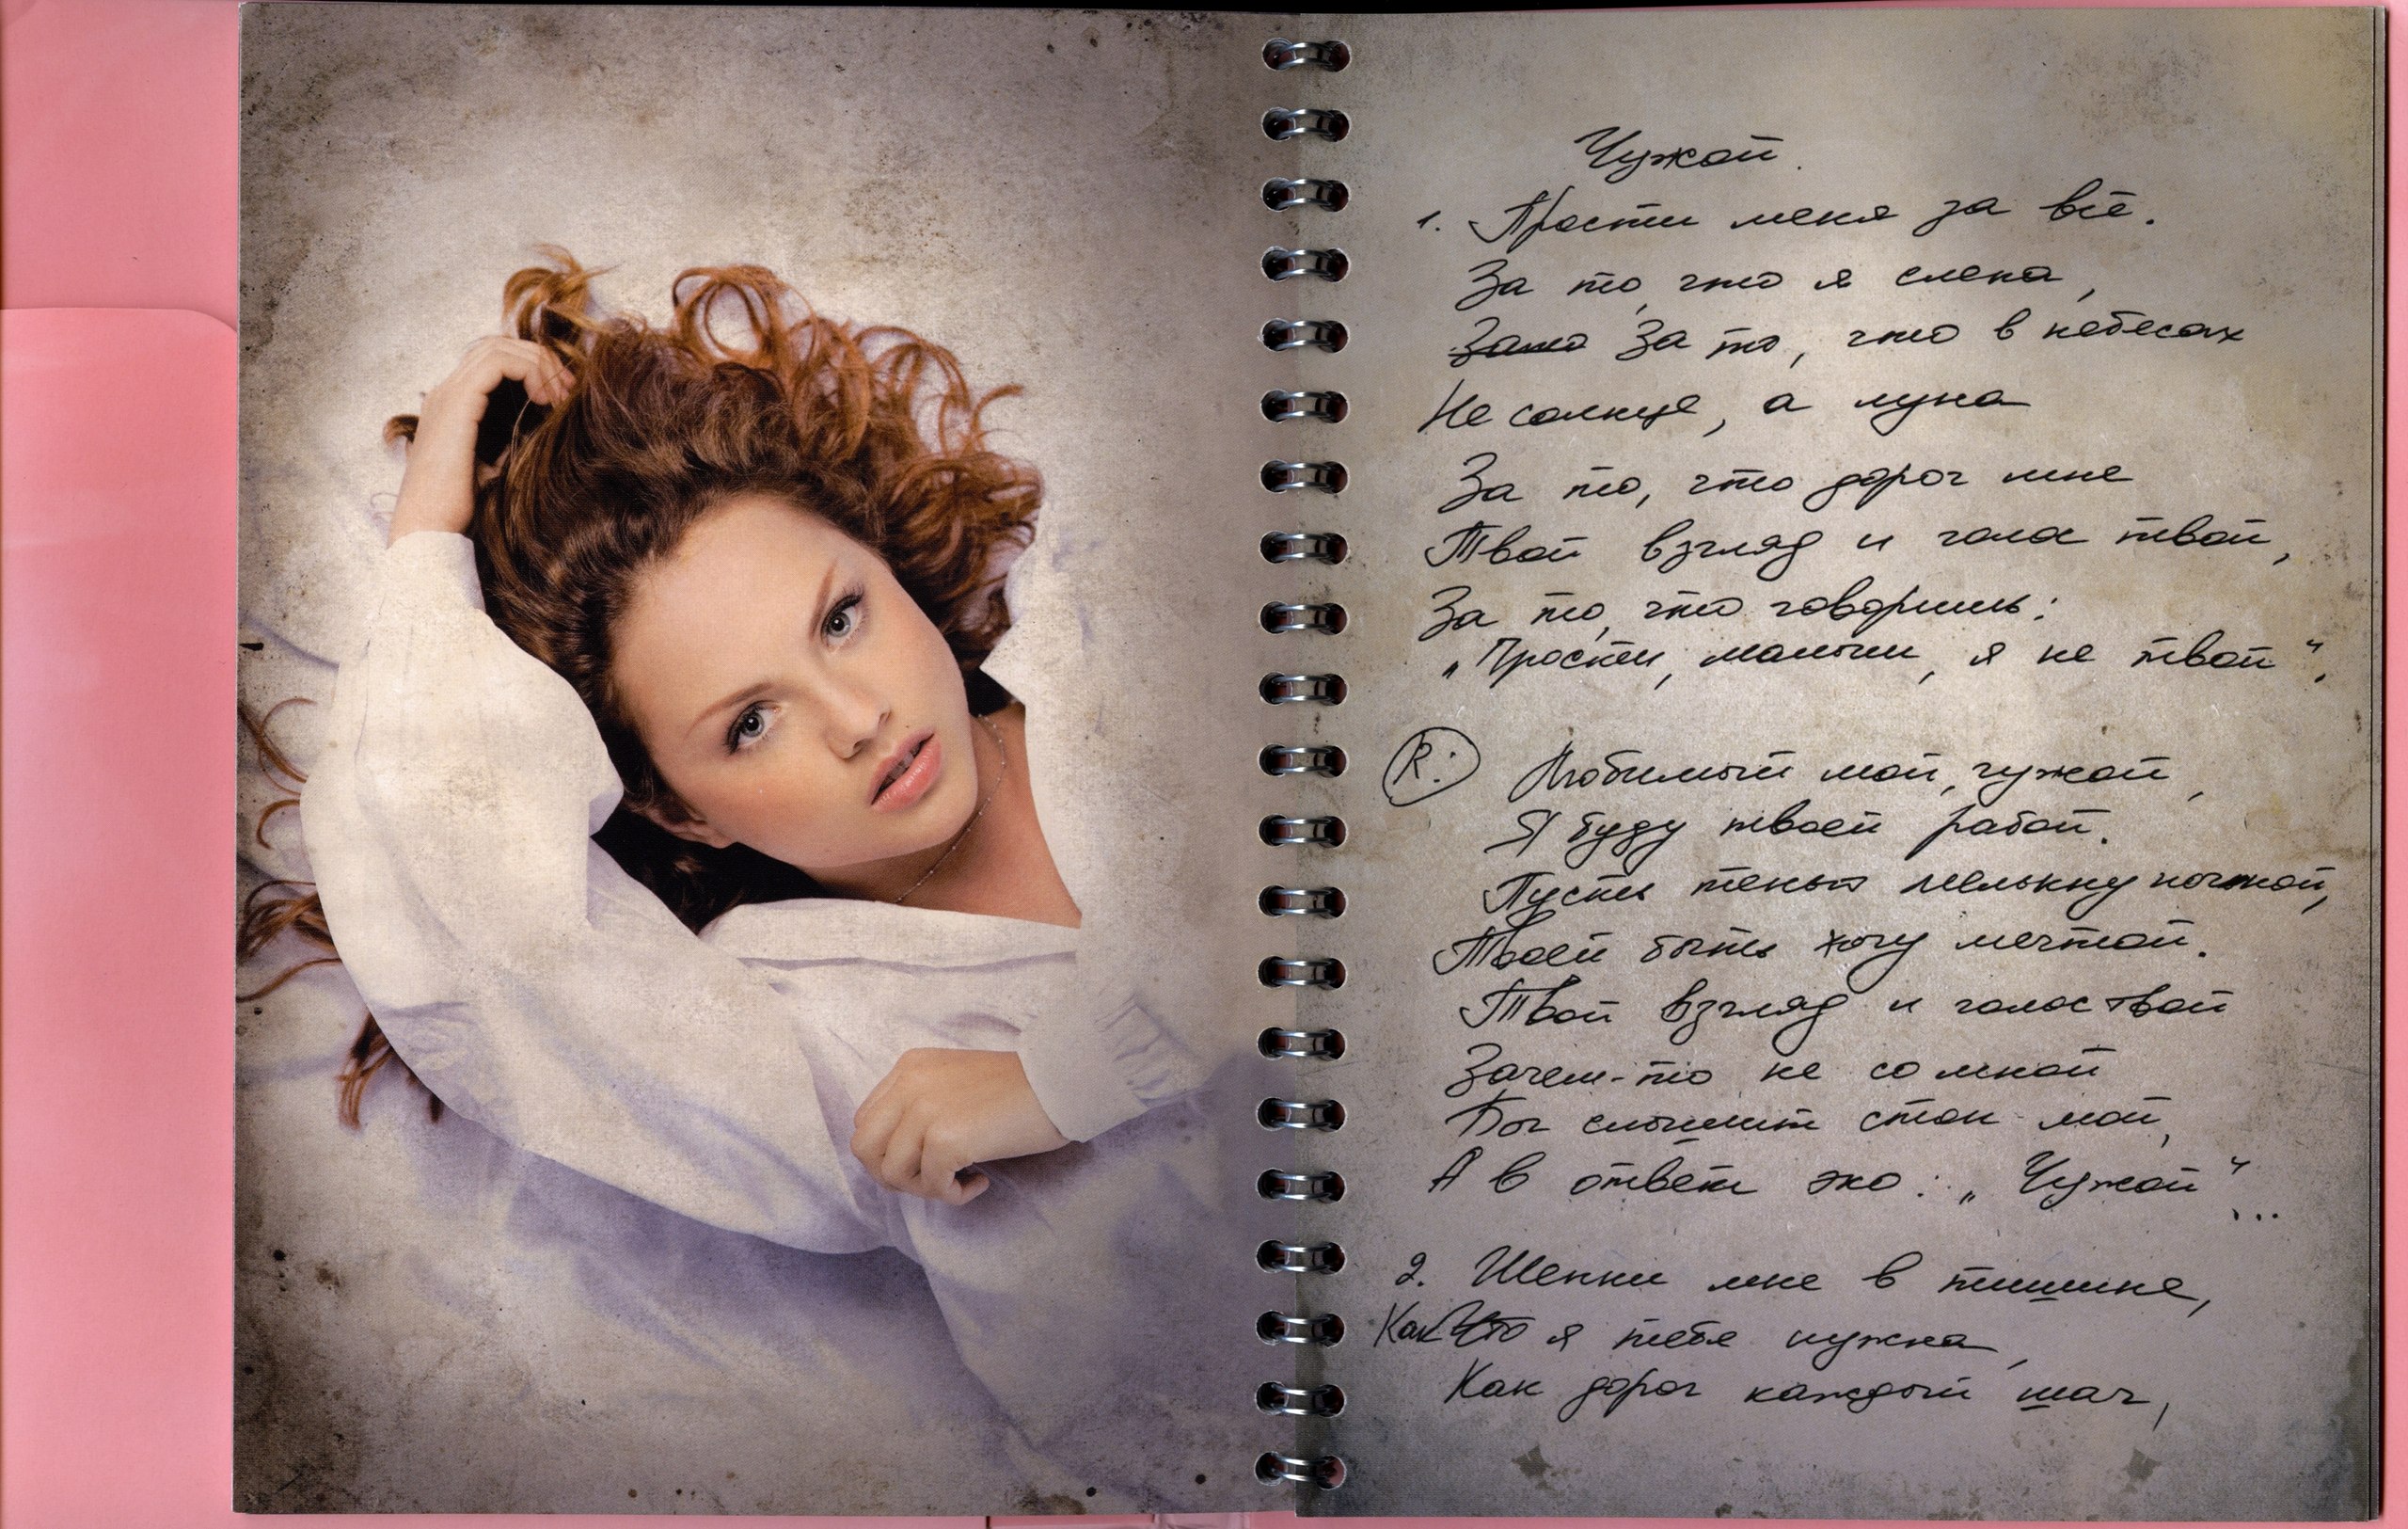 Чужой.
1. Прости меня за всё.
За то, что я слепа,
Зато За то, что в небесах
Не солнце, а луна
За то, что дорог мне
Твой взгляд и голос твой,
За то, что говоришь:
„Прости, малыш, я не твой“.
R: Любимый мой, чужой,
Я буду твоей рабой.
Пусть тенью мелькну ночной,
Твоей быть хочу мечтой.
Твой взгляд и голос твой
Зачем-то не со мной
Бог слышит стон мой,
А в ответ эхо: „Чужой“...
2. Шепни мне в тишине,
Как Что я тебе нужна,
Как дорог каждый шаг,